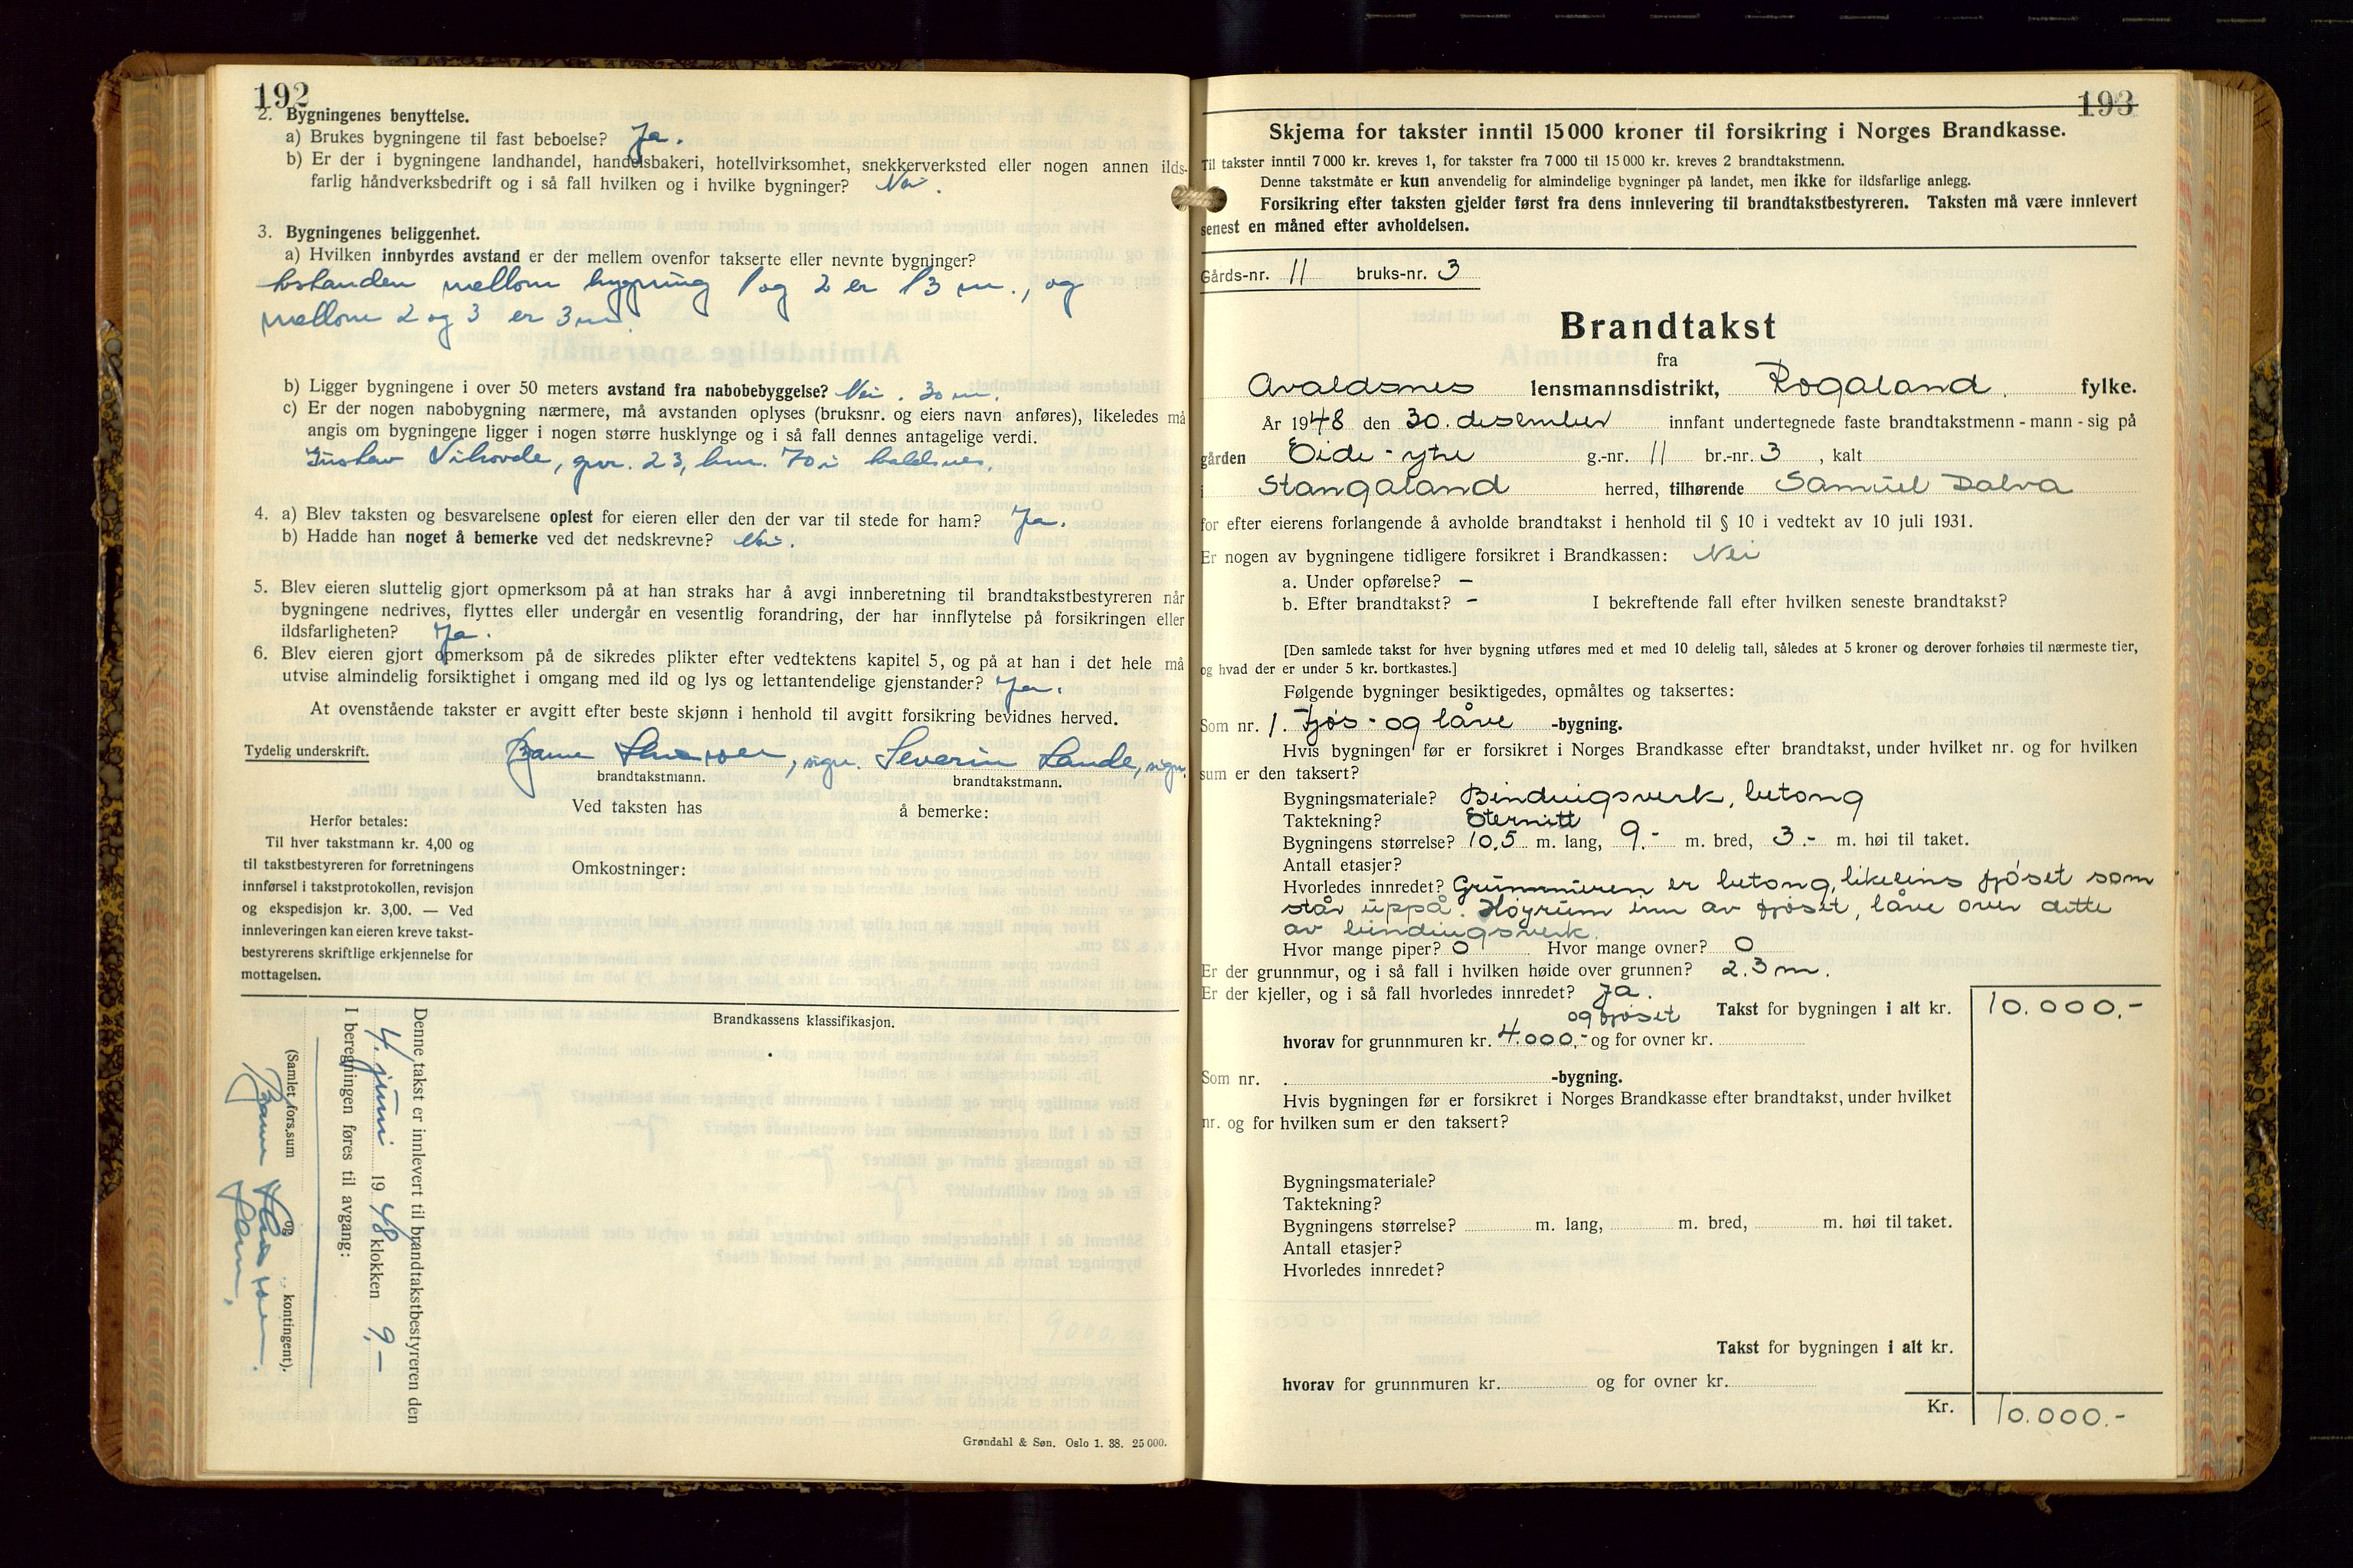 192
2. Bygningenes benyttelse.
a) Brukes bygningene til fast beboelse? Ja.
b) Er der i bygningene landhandel, handelsbakeri, hotellvirksomhet, snekkerverksted eller nogen annen ilds-
farlig håndverksbedrift og i så fall hvilken og i hvilke bygninger? Nei.
3. Bygningenes beliggenhet.
a) Hvilken innbyrdes avstand er der mellem ovenfor takserte eller nevnte bygninger?
Avstanden mellom bygning 1 og 2 er 13 m., og
mellom 2 og 3 er 3 m.
b) Ligger bygningene i over 50 meters avstand fra nabobebyggelse? Nei. 30 m.
c) Er der nogen nabobygning nærmere, må avstanden oplyses (bruksnr. og eiers navn anføres), likeledes må
angis om bygningene ligger i nogen større husklynge og i så fall dennes antagelige verdi.
gnr. 23, bnr. 70 i
4. a) Blev taksten og besvarelsene oplest for eieren eller den der var til stede for ham? Ja.
b) Hadde han noget å bemerke ved det nedskrevne? Nei.
5. Blev eieren sluttelig gjort opmerksom på at han straks har å avgi innberetning til brandtakstbestyreren når
bygningene nedrives, flyttes eller undergår en vesentlig forandring, der har innflytelse på forsikringen eller
ildsfarligheten? Ja.
6. Blev eieren gjort opmerksom på de sikredes plikter efter vedtektens kapitel 5, og på at han i det hele må
utvise almindelig forsiktighet i omgang med ild og lys og lettantendelige gjenstander? Ja.
At ovenstående takster er avgitt efter beste skjønn i henhold til avgitt forsikring bevidnes herved.
Tydelig underskrift.
, sign. Severin Lande, sign.
brandtakstmann. brandtakstmann.
Ved taksten has å bemerke:
Herfor betales:
Til hver takstmann kr. 4,00 og
til takstbestyreren for forretningens
innførsel i takstprotokollen, revisjon
og ekspedisjon kr. 3,00. — Ved
innleveringen kan eieren kreve takst-
bestyrerens skriftlige erkjennelse for
mottagelsen.
Omkostninger:
Brandkassens klassifikasjon.
Denne takst er innlevert til brandtakstbestyreren den
4. juni 1948 klokken 9,-
I beregningen føres til avgang:
(Samlet fors.sum og kontingent).
Grøndahl & Søn. Oslo 1. 38. 25 000.
193
Skjema for takster inntil 15 000 kroner til forsikring i Norges Brandkasse.
Til takster inntil 7 000 kr. kreves 1, for takster fra 7 000 til 15 000 kr. kreves 2 brandtakstmenn.
Denne takstmåte er kun anvendelig for almindelige bygninger på landet, men ikke for ildsfarlige anlegg.
Forsikring efter taksten gjelder først fra dens innlevering til brandtakstbestyreren. Taksten må være innlevert
senest en måned efter avholdelsen.
Gårds-nr. 11 bruks-nr. 3
Brandtakst
fra
Avaldsnes lensmannsdistrikt, Rogaland. fylke.
År 1948 den 30. desember innfant undertegnede faste brandtakstmenn - mann - sig på
gården Eide - ytre g.-nr. 11 br.-nr. 3, kalt
i Stangaland herred, tilhørende Samuel Dalva
for efter eierens forlangende å avholde brandtakst i henhold til § 10 i vedtekt av 10 juli 1931.
Er nogen av bygningene tidligere forsikret i Brandkassen: Nei
a. Under opførelse? –
b. Efter brandtakst? – I bekreftende fall efter hvilken seneste brandtakst?
[Den samlede takst for hver bygning utføres med et med 10 delelig tall, således at 5 kroner og derover forhøies til nærmeste tier,
og hvad der er under 5 kr. bortkastes.]
Følgende bygninger besiktigedes, opmåltes og taksertes:
Som nr. 1. Fjøs - og låve -bygning.
Hvis bygningen før er forsikret i Norges Brandkasse efter brandtakst, under hvilket nr. og for hvilken
sum er den taksert?
Bygningsmateriale? Bindingsverk, betong
Taktekning? Eternitt
Bygningens størrelse? 10,5 m. lang, 9.- m. bred, 3.- m. høi til taket.
Antall etasjer?
Hvorledes innredet? Grunnmuren er betong, likeleins fjøset som
står uppå. Høyrum inn av fjøset, låve over dette
av bindingsverk.
Hvor mange piper? 0 Hvor mange ovner? 0
Er der grunnmur, og i så fall i hvilken høide over grunnen? 2.3 m.
Er der kjeller, og i så fall hvorledes innredet? Ja.
Takst for bygningen i alt kr. 10.000,-
og fjøset
hvorav for grunnmuren kr. 4.000,- og for ovner kr.
Som nr. . -bygning.
Hvis bygningen før er forsikret i Norges Brandkasse efter brandtakst, under hvilket
nr. og for hvilken sum er den taksert?
Bygningsmateriale?
Taktekning?
Bygningens størrelse? m. lang, m. bred, m. høi til taket.
Antall etasjer?
Hvorledes innredet?
Takst for bygningen i alt kr.
hvorav for grunnmuren kr. og for ovner kr.
Kr. 10.000.-